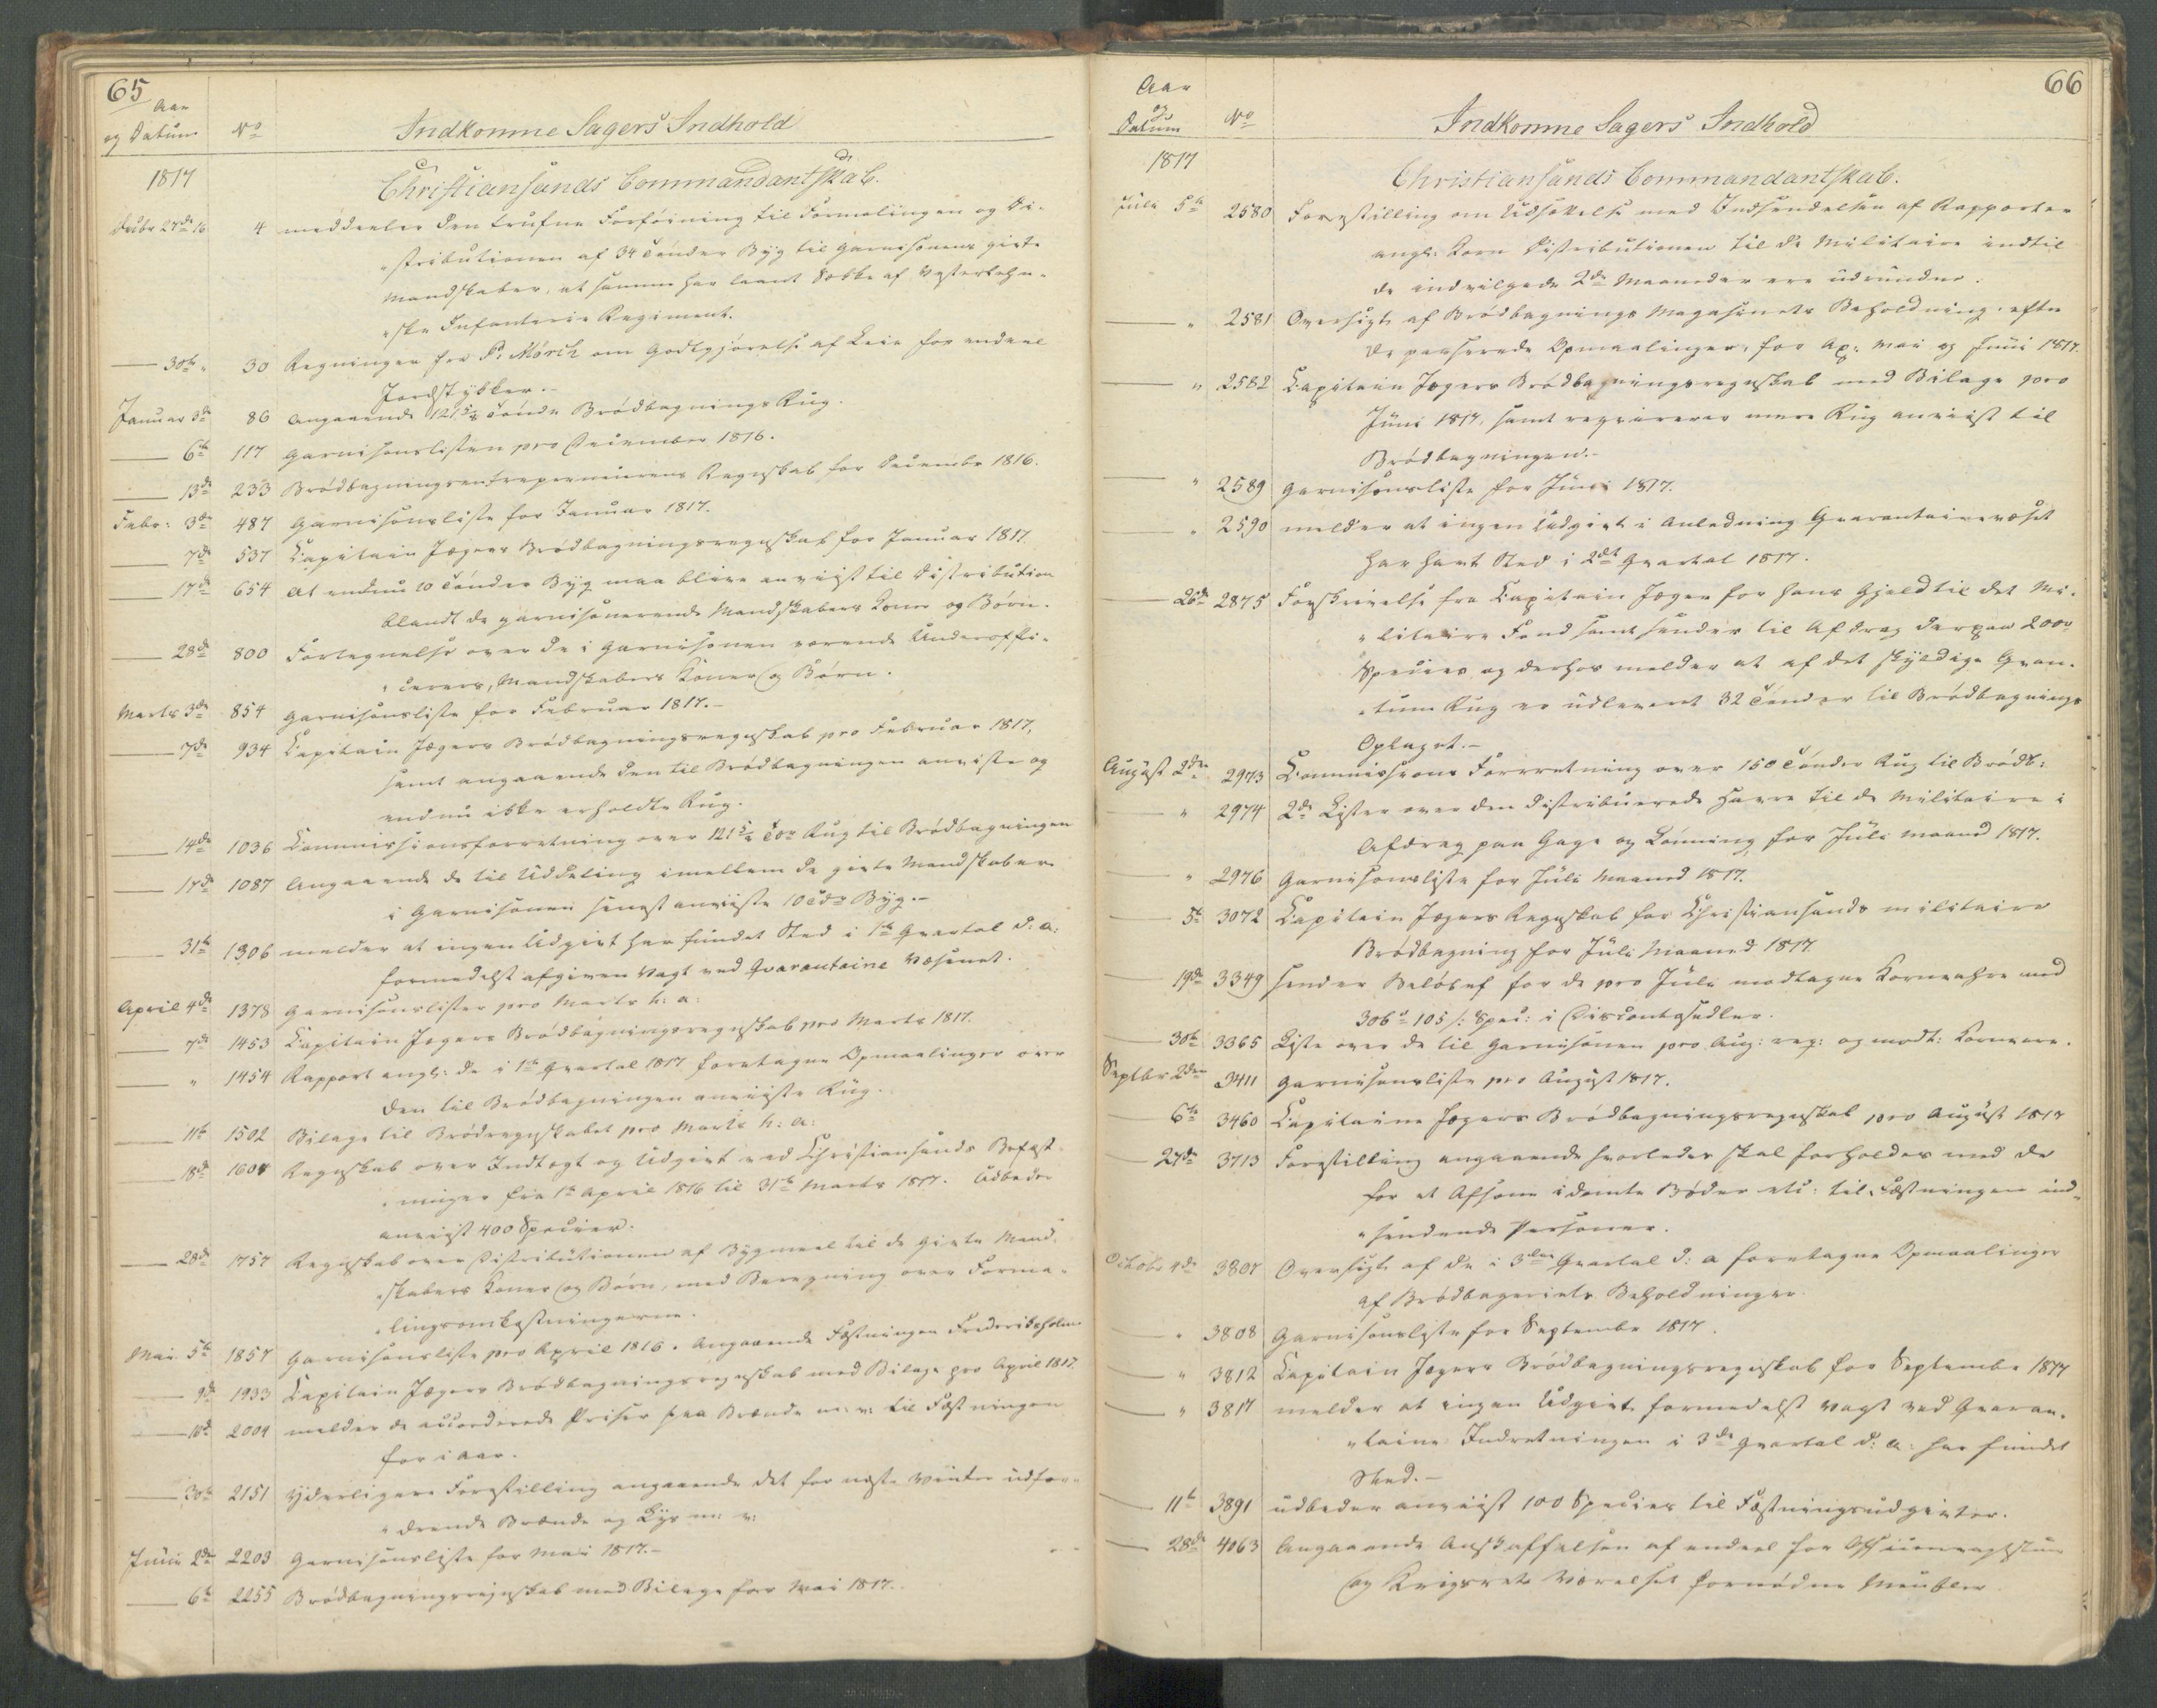 65
Aar
og Datum No Indkomne Sagers Indhold
1817 Christiansands Commandantskab.
Decbr 27de 16 4 meddeeler den trufne Forföining til Formalingen og Di-
"stributionen af 34 Tönder Byg til Garnisonens givte
Mandskaber, at samme har laant Sække af Vesterlehn-
"ske Infanterie Regiment.
— 30te " 30 Regninger fra P: Mörch om Godtgjörelse af Leie for endeel
Jordstykker.-
Januar 3de 86 Angaaende 121 5/8 Tönde Brödbagnings Rug.
— 6te 117 Garnisonslisten pro December 1816.
— 13de 233 Brödbagningsentrepreneurens Regnskab for Decembr 1816.
Febr: 3de 487 Garnisonsliste for Januar 1817.
— 7de 537 Capitain Jægers Brödbagningsregnskab for Januar 1817.
— 17de 654 At endnu 10 Tönder Byg maa blive anviist til Distribution
blandt de garnisonerende Mandskabers Koner og Börn.
— 28de 800 Fortegnelse over de i Garnisonen værende Underoffi-
"cerers, Mandskabers Koner og Börn.
Marts 3de 854 Garnisonsliste for Februar 1817.-
— 7de 934 Capitain Jægers Brödbagningsregnskab pro Februar 1817,
samt angaaende den til Brödbagningen anviiste og
endnu ikke erholdte Rug.
— 14de 1036 Commissionsforretning over 121 5/8 Tdr Rug til Brödbagningen
— 17de 1087 Angaaende de til Uddeling imellem de givte Mandskaber
i Garnisonen senest anviiste 10 Tdr Byg.-
— 31te 1306 melder at ingen Udgivt har fundet Sted i 1te Qvartal d: a:
formedelst afgiven Vagt ved Qvarantaine Væsenet.
April 4de 1378 Garnisonslister pro Marts h: a:
— 7de 1453 Capitain Jægers Brödbagningsregnskab pro Marts 1817.
— " 1454 Rapport angl: de i 1te Qvartal 1817 foretagne Opmaalinger over
den til Brödbagningen anviiste Rug.
— 11te 1502 Bilage til Brödregnskabet pro Marts h: a:
— 18de 1604 Regnskab over Indtægt og Udgivt ved Christiansands Befæst-
"ninger fra 1te April 1816 til 31te Marts 1817. Udbeder
anviist 400 Specier.
— 28de 1757 Regnskab over Distributionen af Bygmeel til de givte Mand-
"skabers Koner og Börn, med Beregning over Forma-
"lingsomkostningerne.
Mai 5te 1857 Garnisonsliste pro April 1816. Angaaende Fæstningen Frederiksholm
— 9de 1933 Capitain Jægers Brödbagningsregnskab med Bilage pro April 1817.
— 2004 melder de accorderede Priser paa Brænde m: v: til Fæstningen
for i Aar.
— 30te 2151 Yderligere Forestilling angaaende det for næste Vinter udfor-
"drende Brænde og Lys m: v:
Juni 2den 2203 Garnisonsliste for Mai 1817.-
— 6te 2255 Brödbagningsregnskab med Bilage for Mai 1817.
66
Aar
og
Datum No Indkomne Sagers Indhold
1817 Christiansands Commandantskab.
Juli 5te 2580 Forestilling om Udsættelse med Indsendelsen af Rapporter
angl: Korn Distributionen til de Militaire indtil
de indvilgede 2de Maaneder ere udrundne.
— " 2581 Oversigt af Brödbagnings Magasinets Beholdning, efter
de passerede Opmaalinger, for Ap: Mai og Juni 1817.
— " 2582 Capitain Jægers Brödbagningsregnskab med Bilage pro
Juni 1817, samt reqvirerer mere Rug anviist til
Brödbagningen.-
— " 2589 Garnisonsliste for Juni 1817.
— " 2590 melder at ingen Udgivt i Anledning Qvarantainevæset
har havt Sted i 2det Qvartal 1817.
— 26de 2875 Forskrivelse fra Capitain Jæger for hans Gjeld til det Mi-
"litaire Fond samt sender til Afdrag derpaa 200
Species og derhos melder at af det skyldige Qvan-
"tum Rug er udleveret 32 Tönder til Brödbagnings
Oplaget.-
August 2den 2973 Commissions Forretning over 150 Tönder Rug til Brödb:
— " 2974 2de Lister over den distribuerede Havre til de Militaire i
Afdrag paa Gage og Lönning for Juli Maaned 1817.
— " 2976 Garnisonsliste for Juli Maaned 1817.
— 5te 3072 Capitain Jægers Regnskab for Christiansands militaire
Brödbagning for Juli Maaned 1817
— 19de 3349 sender Belöbet for de pro Juli modtagne Kornvahre med
306 105 s: Spec: i Discontosedler.
— 30te 3365 Liste over de til Garnisonen pro Aug: req: og modt: Kornvare.
Septbr 2den 3411 Garnisonsliste pro August 1817.
— 6te 3460 Capitaine Jægers Brödbagningsregnskab pro August 1817
— 27de 3713 Forestilling angaaende hvorledes skal forholdes med de
for at Afsone idömte Böder etc: til Fæstningen ind-
"sendende Personer.
Octobr 4de 3807 Oversigt af de i 3die Qvartal d: a foretagne Opmaalinger
af Brödbageriets Beholdninger.
— " 3808 Garnisonsliste for Septembr 1817.
— " 3812 Capitain Jægers Brödbagningsregnskab for Septembr 1817
— " 3817 melder at ingen Udgivt formedelst Vagt ved Qvaran-
"taine Indretningen i 3de Qvartal d: a: har fundet
Sted.-
— 11te 3891 udbeder anviist 100 Species til Fæstningsudgivter.
— 28de 4063 Angaaende Anskaffelsen af endeel for Officiervagtstuen
og Krigsrets Værelset fornödne Meubler